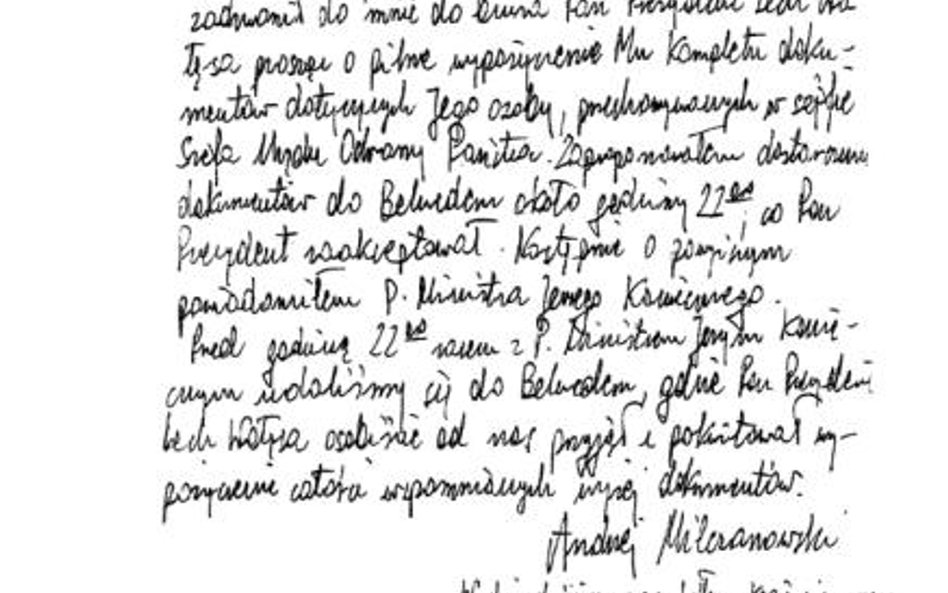 zadzwonił do mnie do biura Pan Prezydent Lech Wa
łęsa prosząc o pilne wypożyczenie Mu kompletu doku-
mentów dotyczących Jego osoby, przechowywanych w sejfie
Szefa Urzędu Ochrony Państwa. Zaproponowałem dostarczenie
dokumentów do Belwederu około godziny 22⁰⁰, co Pan
Prezydent zaakceptował. Następnie o powyższym
powiadomiłem P. Ministra Jerzego Koniecznego.
Przed godziną 22⁰⁰ razem z P. Ministrem Jerzym Konie-
cznym udaliśmy się do Belwederu, gdzie Pan Prezydent
Lech Wałęsa osobiście od nas przyjął i pokwitował wy-
pożyczenie całości wspomnianych wyżej dokumentów.
Andrzej Milczanowski